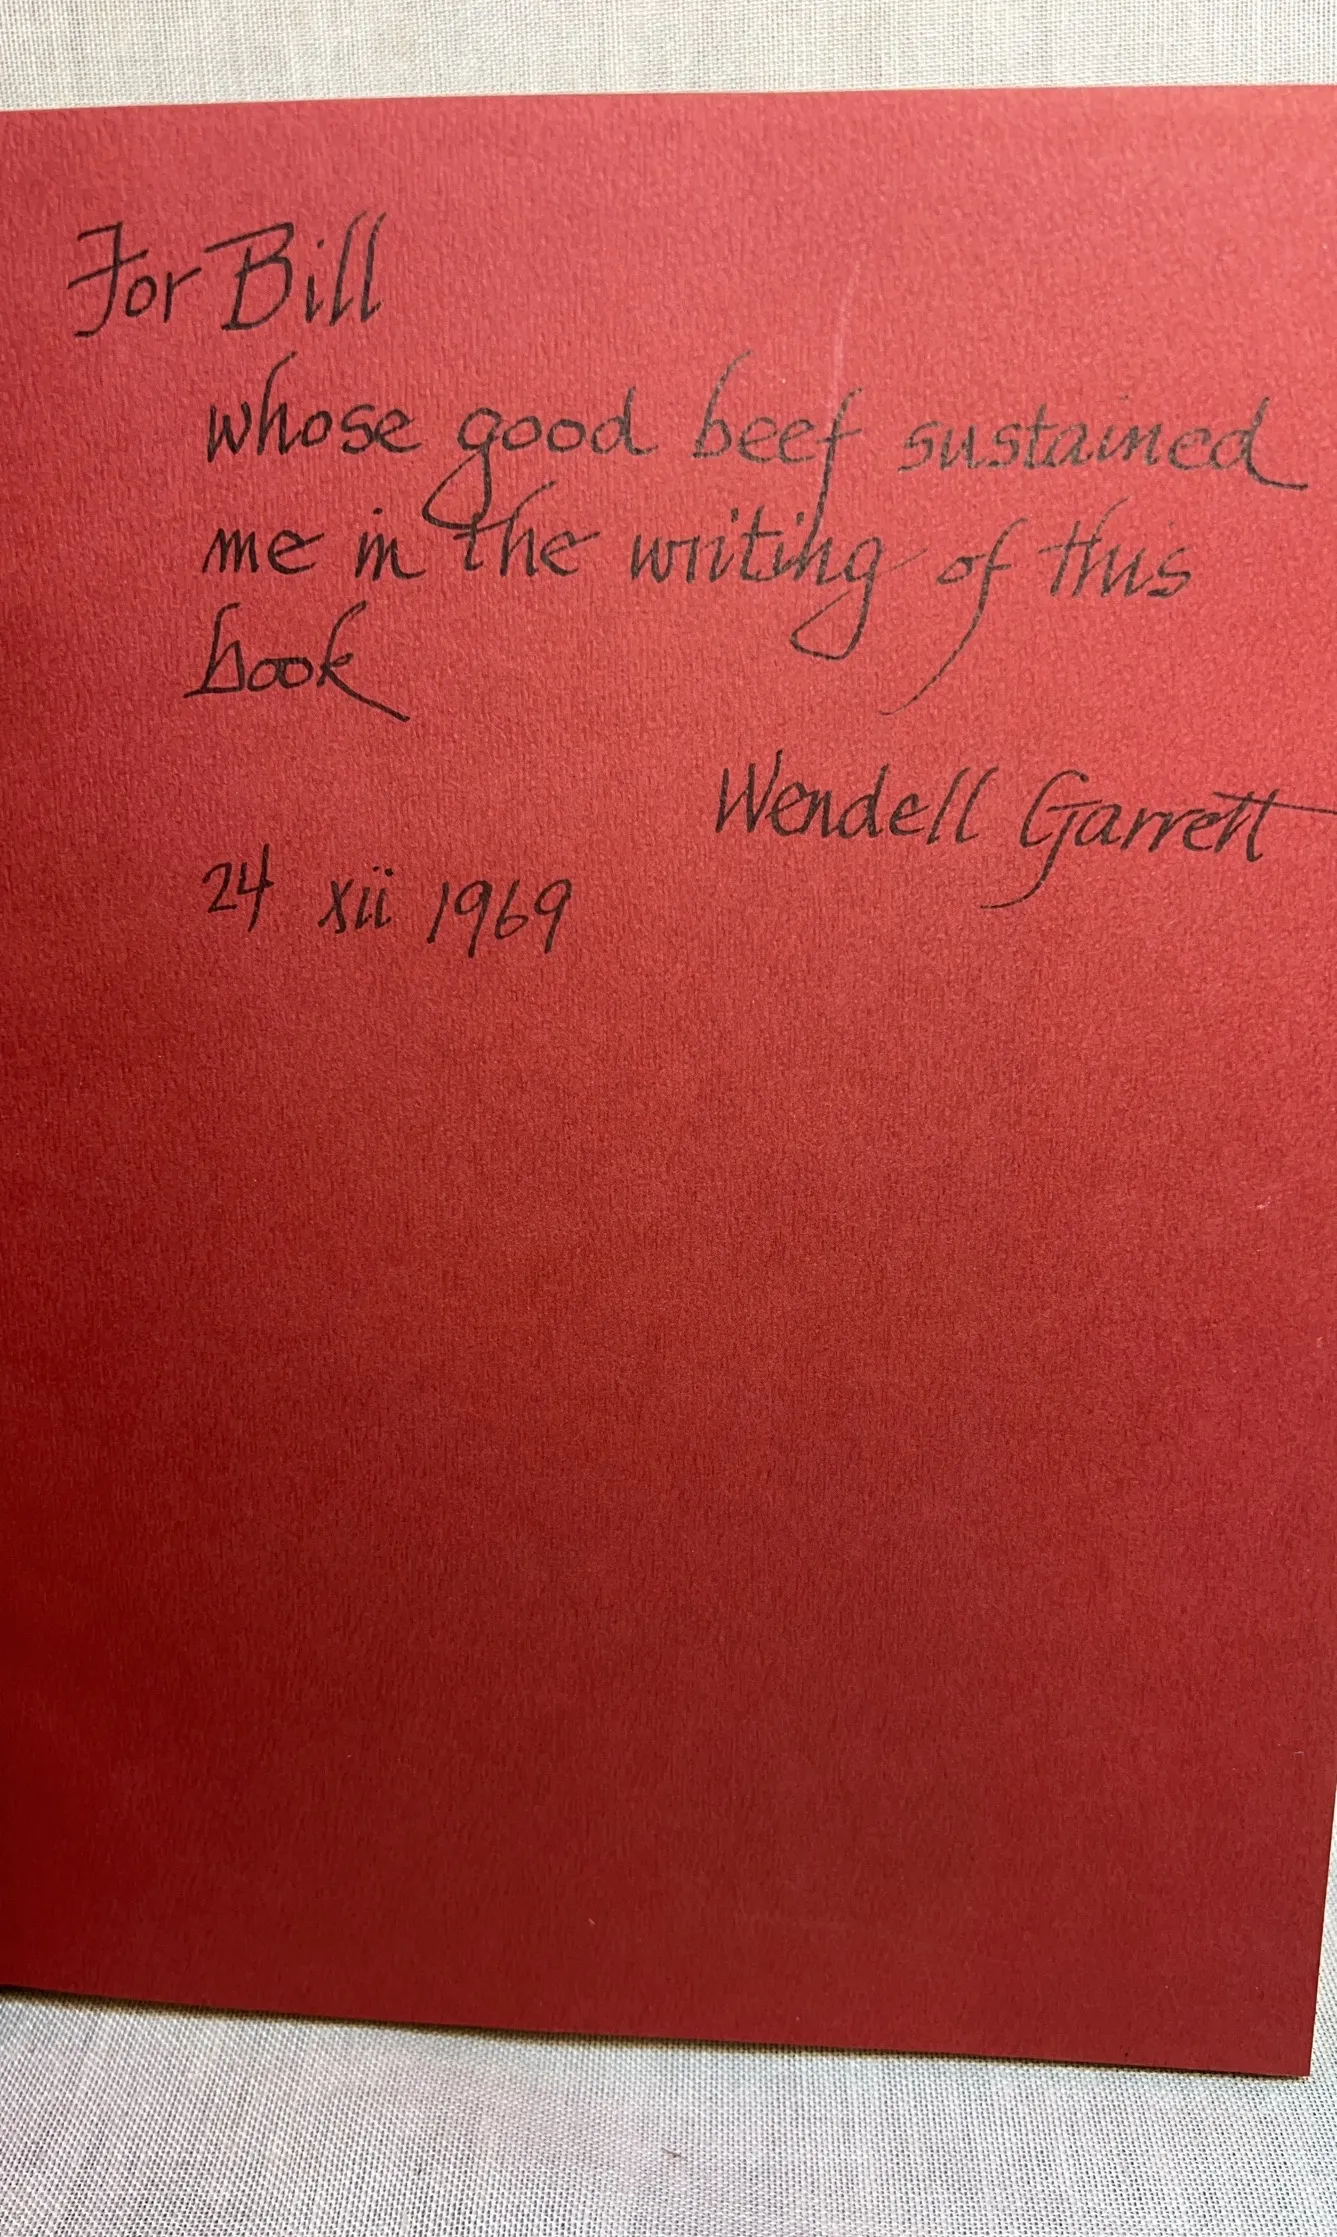 For Bill
whose good beef sustained
me in the writing of this
book
Wendell Garrett
24 xii 1969